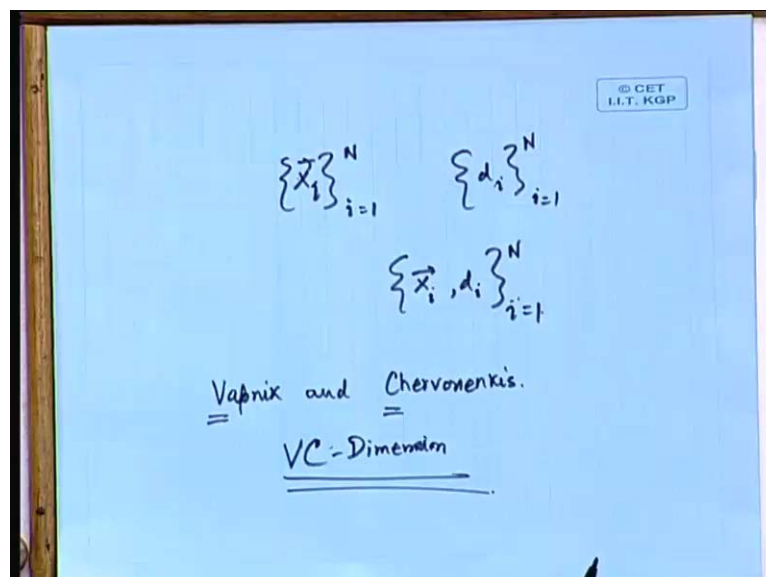 © CET
I.I.T. KGP
{x⃗i}ᴺi=1 {di}ᴺi=1
{x⃗i, di}ᴺi=1
Vapnix and Chervonenkis.
VC-Dimension